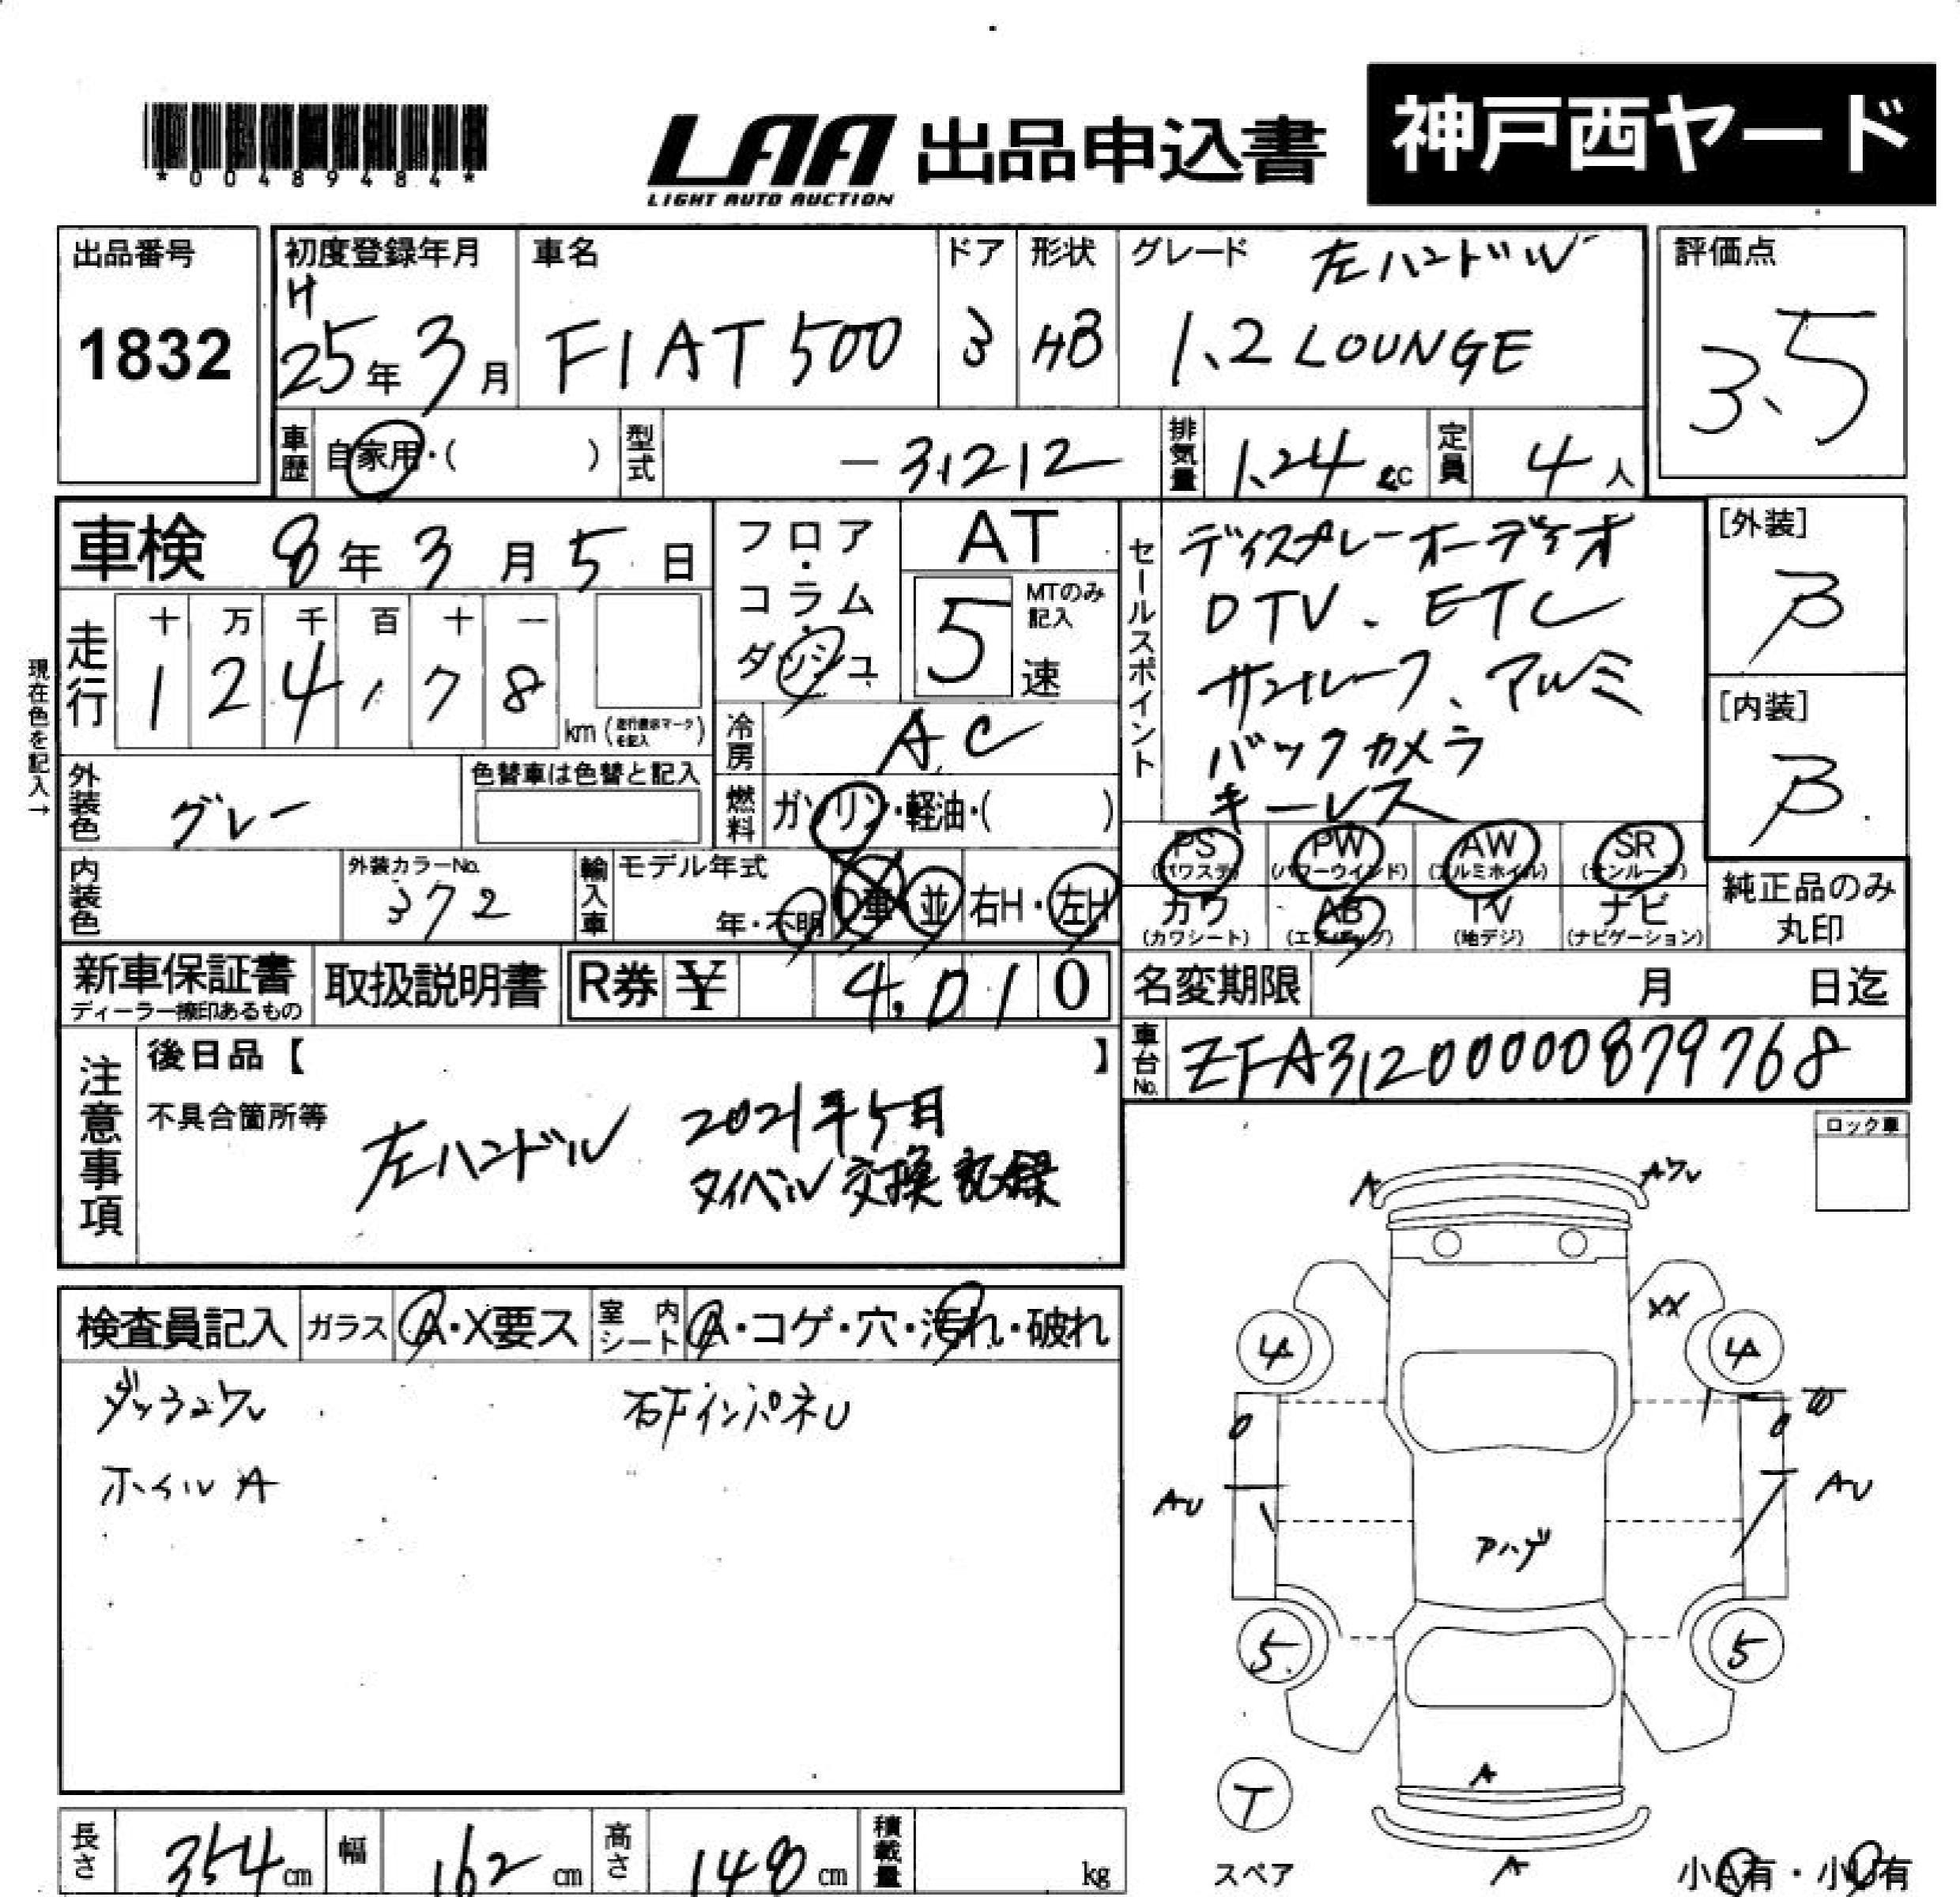 *00489484*
LAA 出品申込書
LIGHT AUTO AUCTION
神戸西ヤード
出品番号
1832
初度登録年月
H
25年3月
車名
FIAT 500
ドア
3
形状
HB
グレード 左ハンドル
1.2 LOUNGE
評価点
3.5
車歴 自家用・( )
型式 -31212
排気量 1.24 cc
定員 4人
車検 8年3月5日
フロア・コラム・ダッシュ
AT
5速
MTのみ記入
セールスポイント
ディスプレーオーディオ
DTV. ETC
サンルーフ、アルミ
バックカメラ
キーレス
[外装]
B
[内装]
B
現在色を記入→
走行
十 万 千 百 十 一
1 2 4 1 7 8
km (走行表示マークを記入)
冷房 A.C
燃料 ガソリン・軽油・( )
外装色 グレー
色替車は色替と記入
内装色
外装カラーNo.
372
輸入車
モデル年式
年・不明
並
右H・左H
PS (パワステ)
PW (パワーウインド)
AW (アルミホイル)
SR (サンルーフ)
カワ (カワシート)
AB (エアバッグ)
TV (地デジ)
ナビ (ナビゲーション)
純正品のみ丸印
新車保証書
ディーラー捺印あるもの
取扱説明書
R券 ¥ 4,010
名変期限 月 日迄
車台No. ZFA31200000879768
注意事項
後日品【 】
不具合箇所等
左ハンドル
2021年5月
タイベル交換記録
ロック車
検査員記入
ガラス A・X要ス
室内シート A・コゲ・穴・汚れ・破れ
ホイルA
A
XX
4 4
AU
AU
5 5
A
T
スペア
A
小A有・小U有
長さ 354 cm
幅 162 cm
高さ 148 cm
積載量 kg